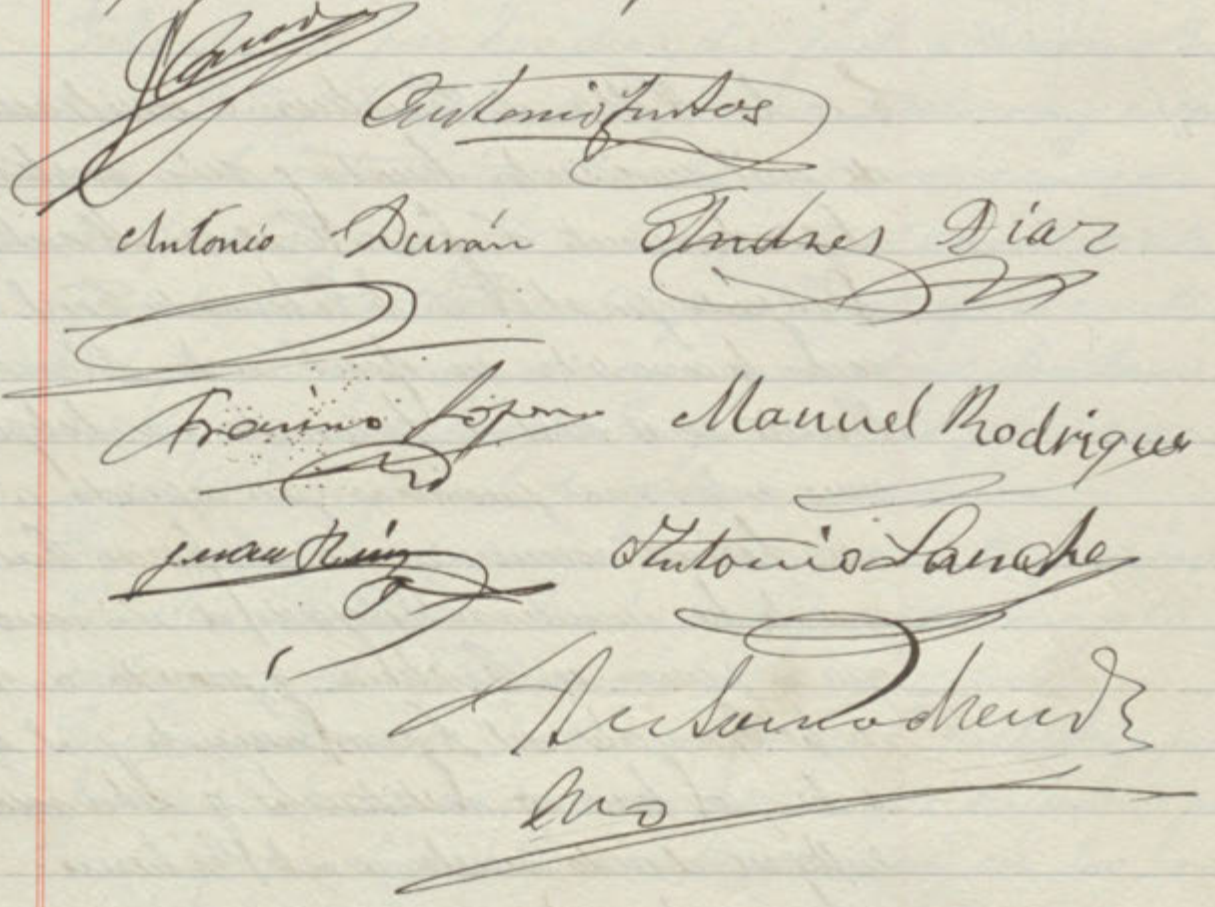 Antonio Juntos
Antonio Durán Andres Diaz
Francisco López Manuel Rodriguez
Juan Ruiz Antonio Sanche
Antonio